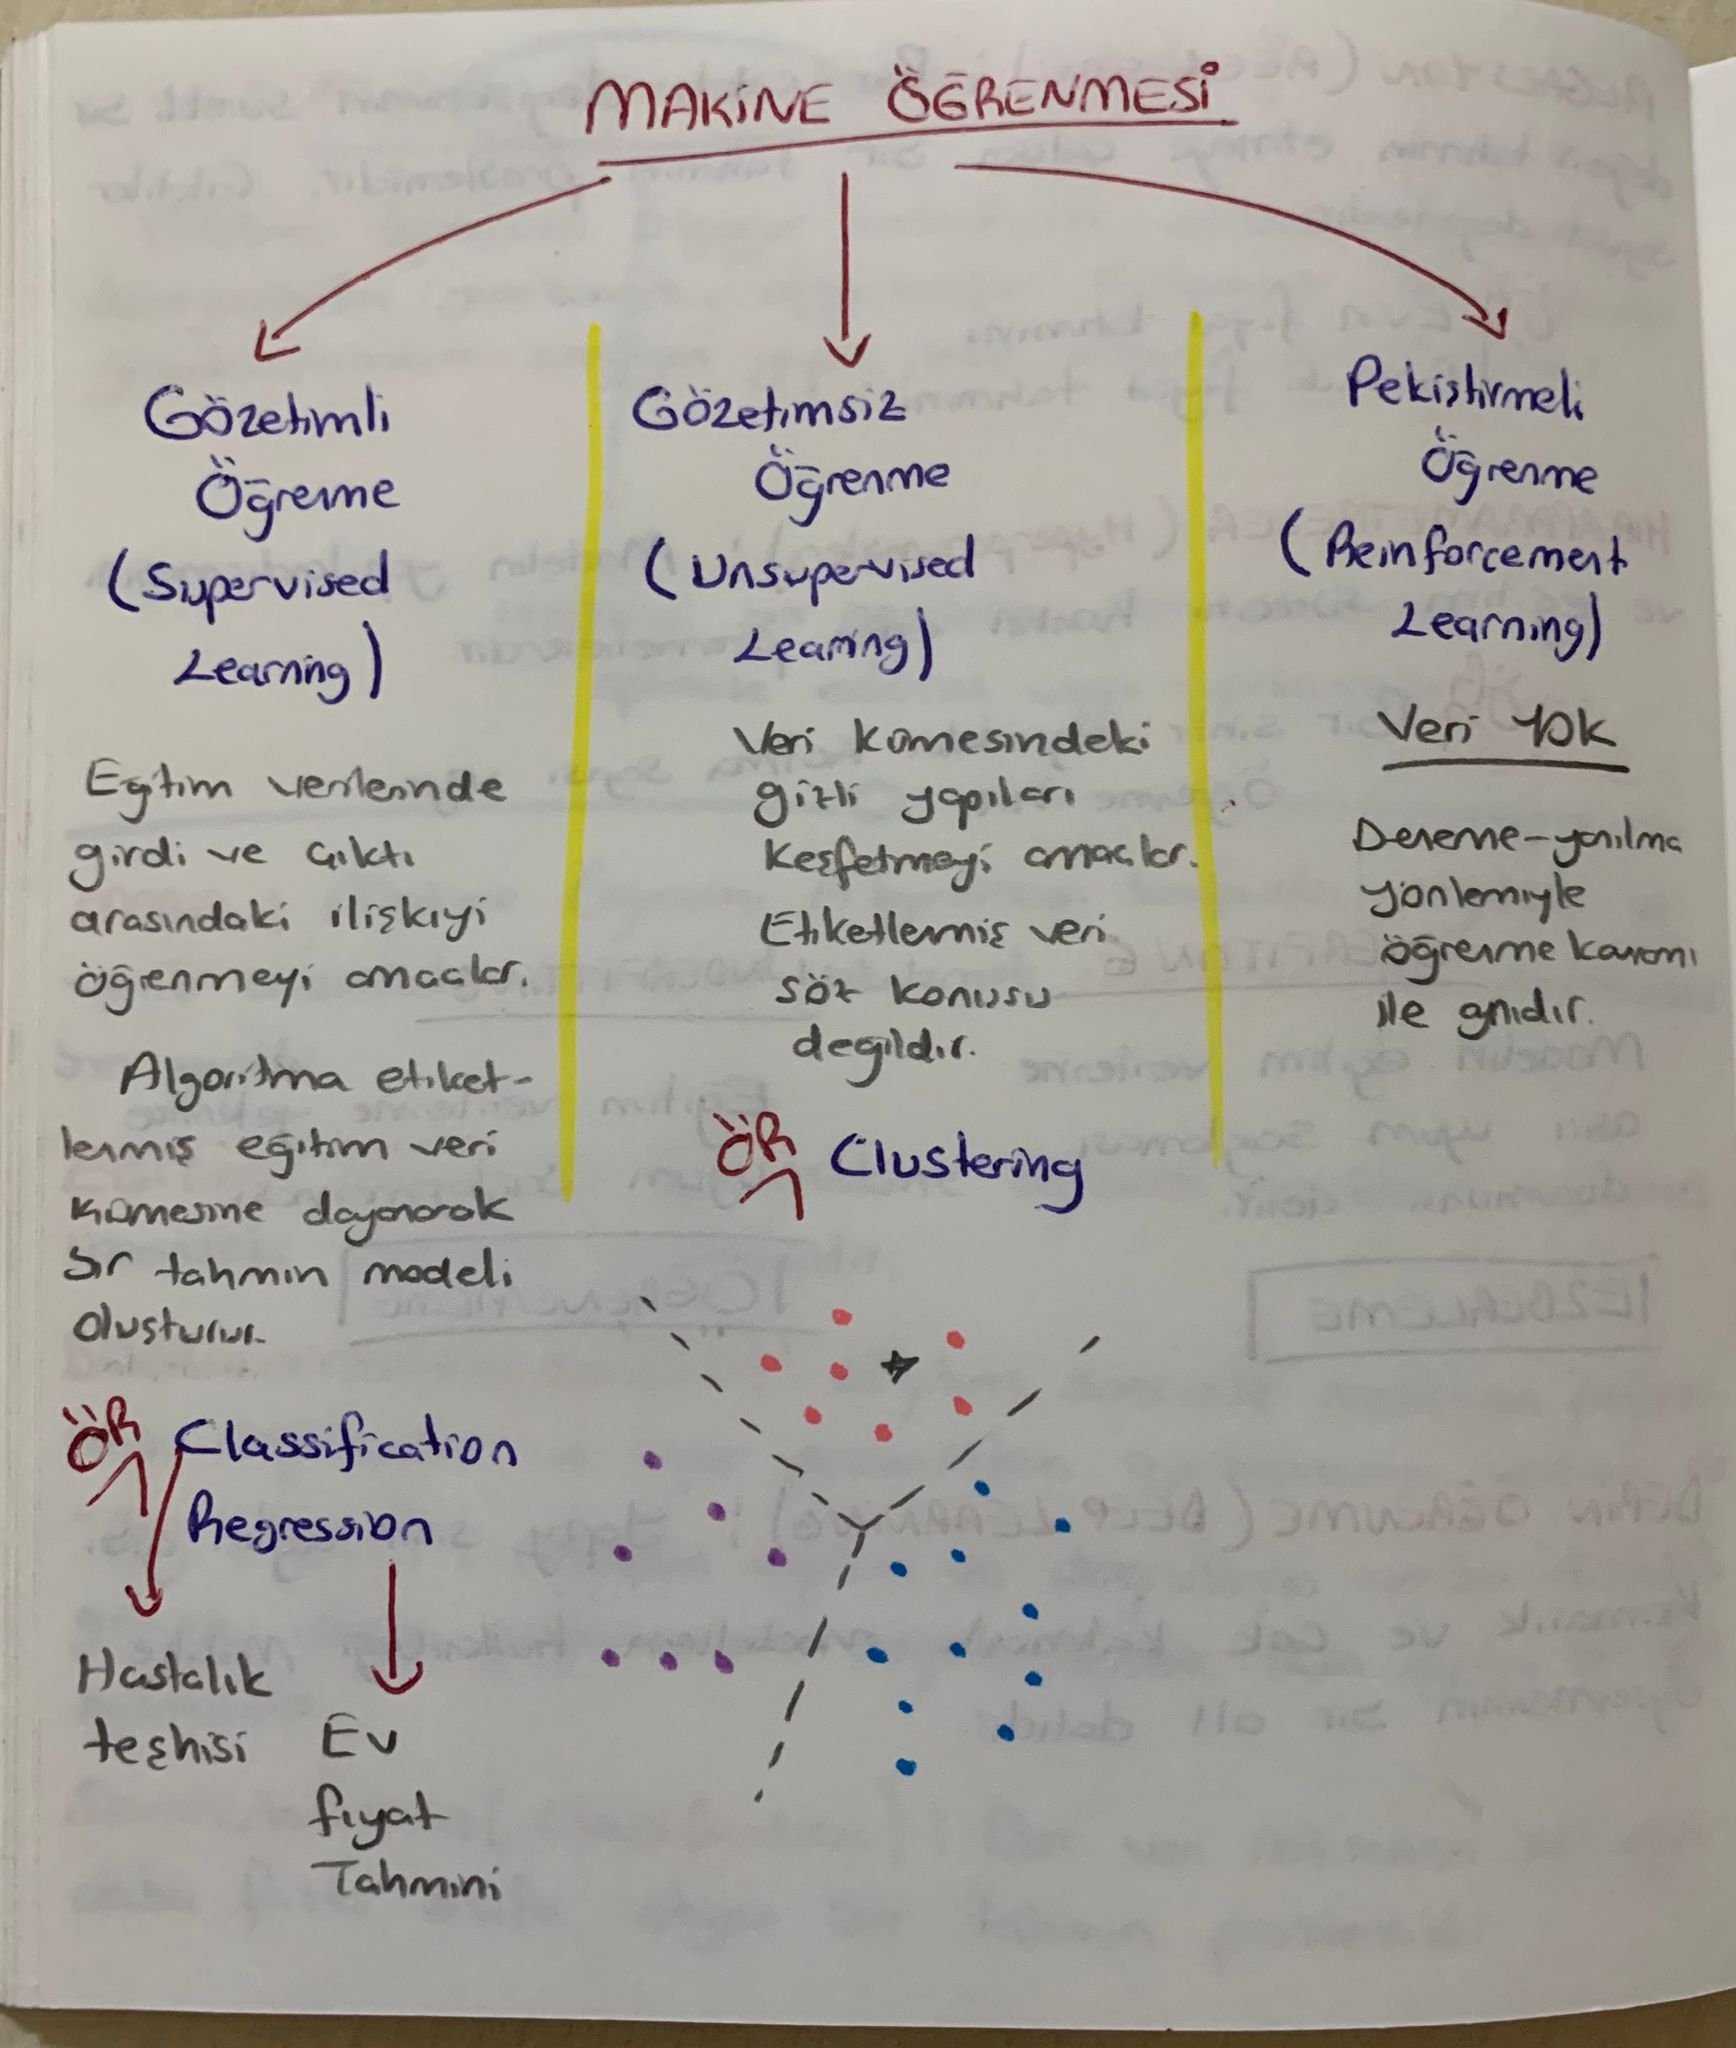 MAKİNE ÖĞRENMESİ
Gözetimli
Öğrenme
(Supervised
Learning)
Eğitim verilerinde
girdi ve çıktı
arasındaki ilişkiyi
öğrenmeyi amaçlar.
Algoritma etiket-
lenmiş eğitim veri
kümesine dayanarak
bir tahmin modeli
oluşturur.
ÖR
Classification
Regression
Hastalık
teşhisi
Ev
fiyat
Tahmini
Gözetimsiz
Öğrenme
(Unsupervised
Learning)
Veri kümesindeki
gizli yapıları
keşfetmeyi amaçlar.
Etiketlenmiş veri
söz konusu
değildir.
ÖR Clustering
Pekiştirmeli
Öğrenme
(Reinforcement
Learning)
Veri yok
Deneme-yanılma
yöntemiyle
öğrenme kavramı
ile aynıdır.